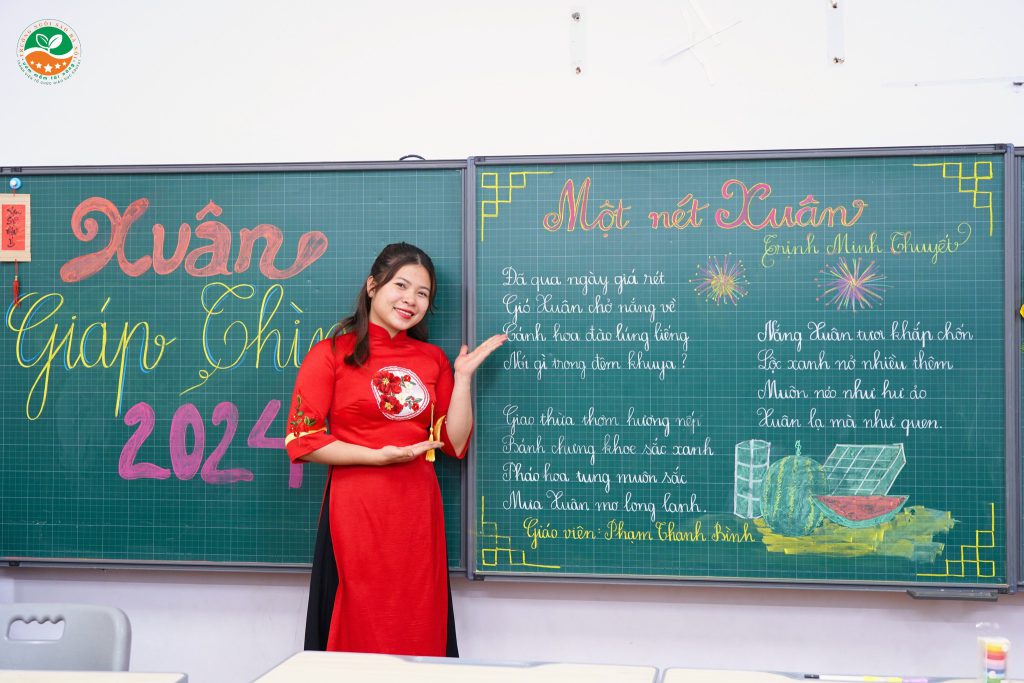 Xuân
Giáp Thìn
2024
Một nét Xuân
Trịnh Minh Thuyết
Đã qua ngày giá rét
Gió Xuân chở nắng về
Cánh hoa đào lúng liếng
Nói gì trong đêm khuya ?
Giao thừa thơm hương nếp
Bánh chưng khoe sắc xanh
Pháo hoa tung muôn sắc
Mưa Xuân mơ long lanh.
Nắng Xuân tươi khắp chốn
Lộc xanh nở nhiều thêm
Muôn nẻo như hư ảo
Xuân lạ mà như quen.
Giáo viên: Phạm Thanh Bình